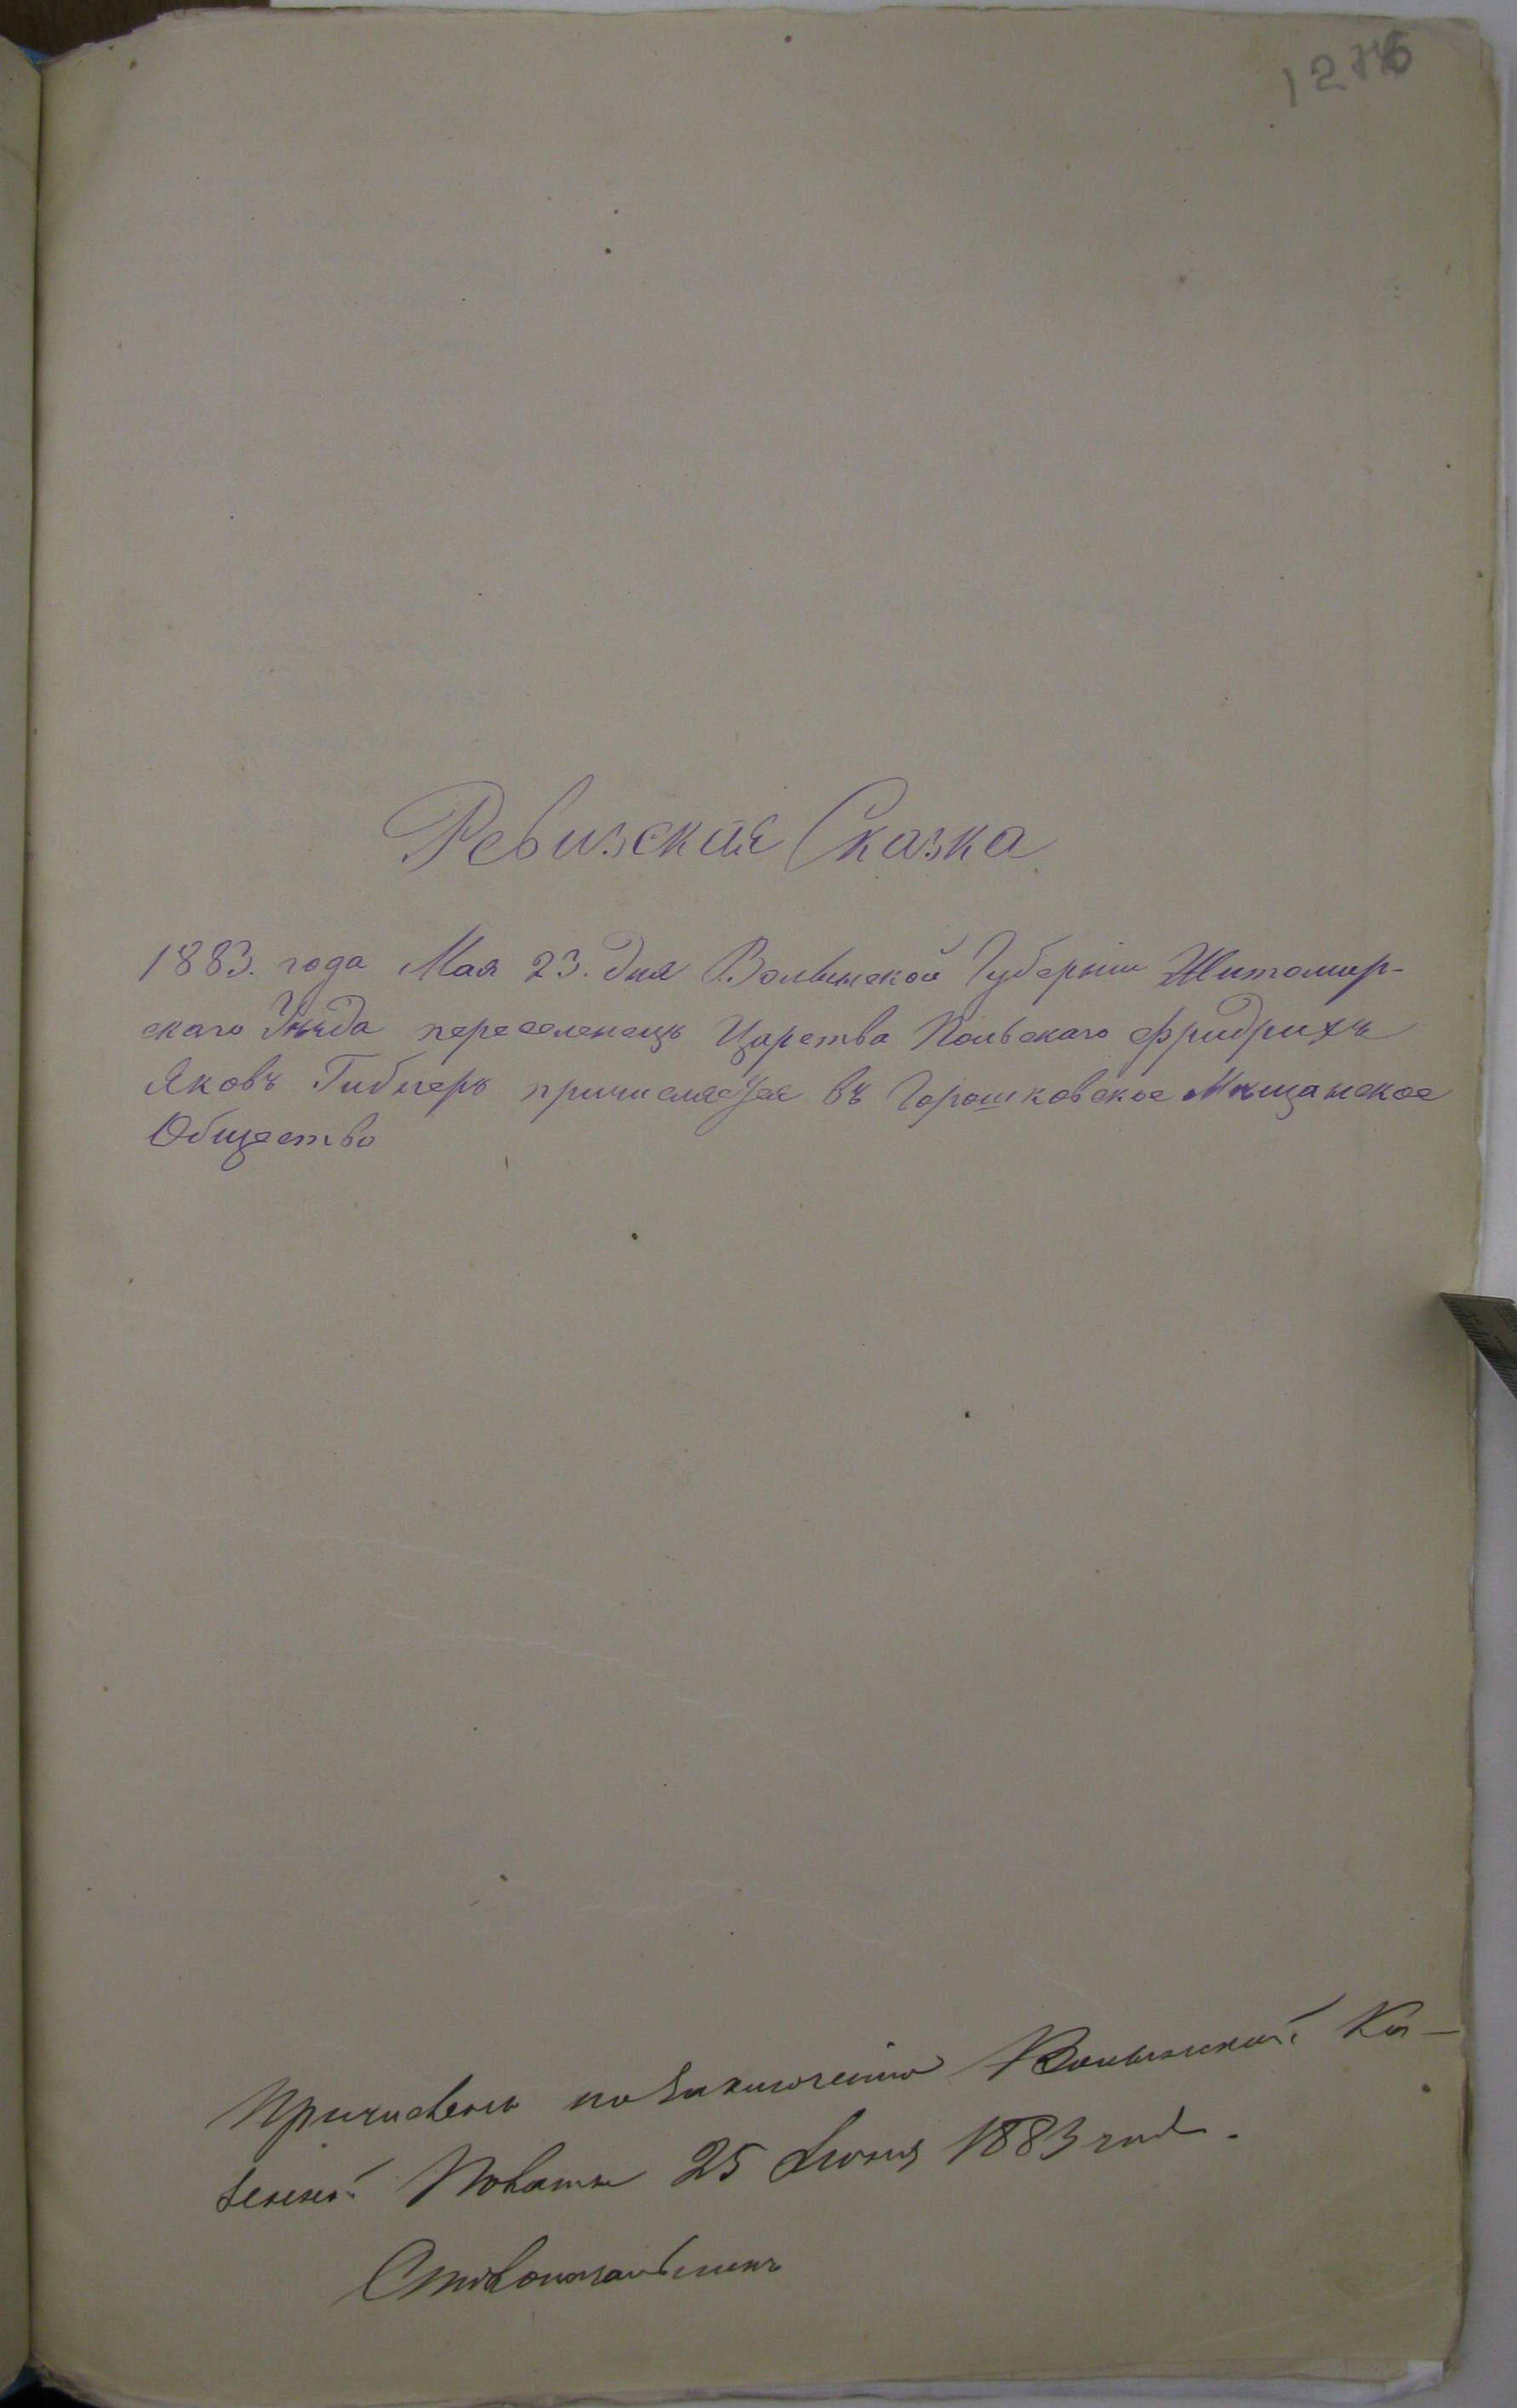 1276
Ревизская Сказка
1883. года Мая 23. дня Волынской Губернии Житомир-
скаго Уѣзда переселенецъ Царства Польскаго Фридрихъ
Яковъ причисляется въ Горошковское Мѣщанское
Общество
Причисленъ по заключенію Волынской Ка-
зенной Палаты 25 Июня 1883 года.
Столоначальникъ